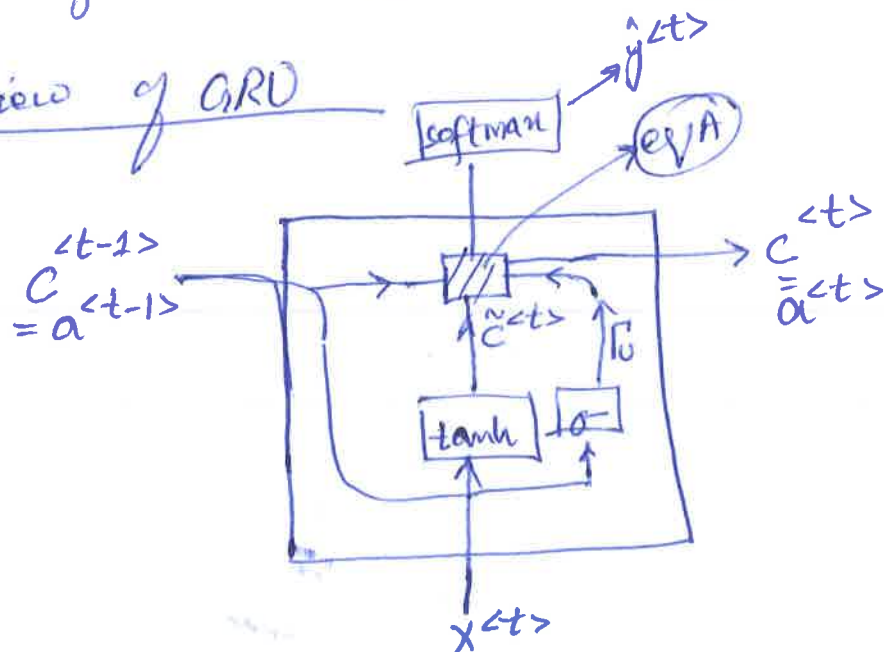 of GRU
ŷ<t>
softmax
eqⁿ A
c<t-1>
= a<t-1>
c<t>
= a<t>
c̃<t>
Γu
tanh
σ
x<t>